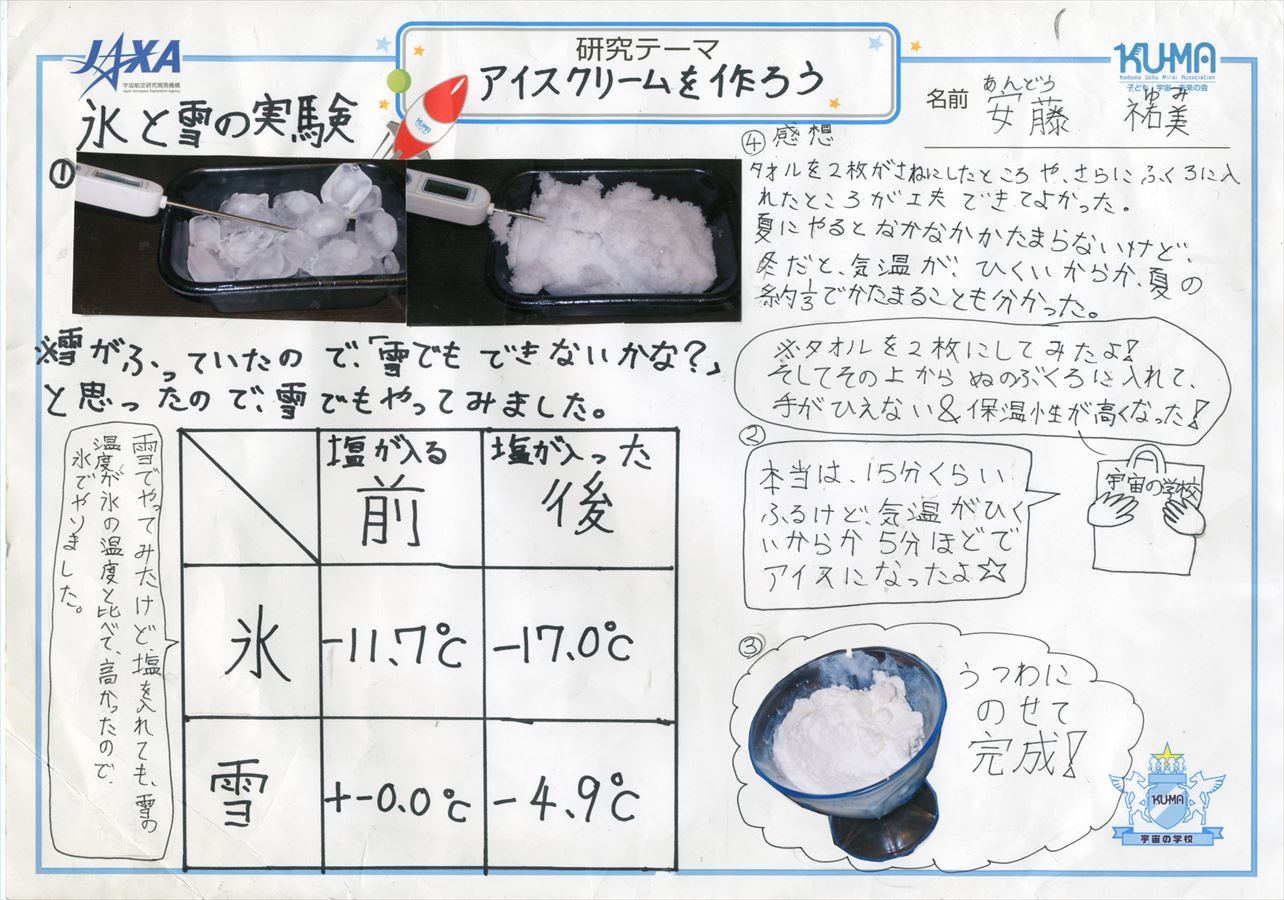 JAXA
宇宙航空研究開発機構
Japan Aerospace Exploration Agency
研究テーマ
アイスクリームを作ろう
KU-MA
Kodomo Uchu Mirai Association
子ども・宇宙・未来の会
名前
あんどう ゆみ
安藤 祐美
氷と雪の実験
①
KU-MA
※雪がふっていたので、「雪でもできないかな?」
と思ったので、雪でもやってみました。
雪でやってみたけど、塩を入れても、雪の
温度が氷の温度と比べて、高かったので、
氷でやりました。
塩が入る 塩が入った
前 後
氷 -11.7℃ -17.0℃
雪 +-0.0℃ -4.9℃
④感想
タオルを2枚がさねにしたところや、さらにふくろに入
れたところが工夫できてよかった。
夏にやるとなかなかかたまらないけど、
冬だと、気温が、ひくいからか、夏の
約1/3でかたまることも分かった。
※タオルを2枚にしてみたよ!
そしてその上からぬのぶくろに入れて、
手がひえない&保温性が高くなった!
②
本当は、15分くらい
ふるけど、気温がひく
いからか5分ほどで
アイスになったよ☆
宇宙の学校
③
うつわに
のせて
完成!
KU-MA
宇宙の学校